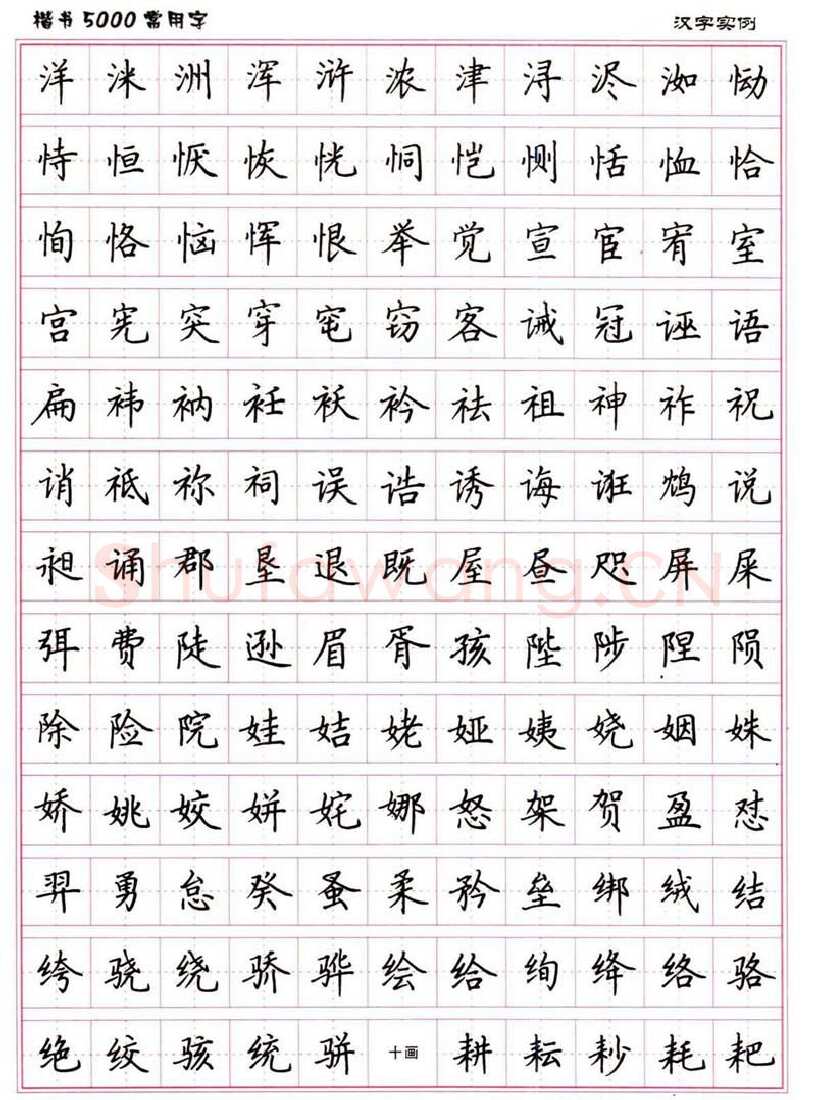 楷书5000常用字 汉字实例
洋 洣 洲 浑 浒 浓 津 浔 浕 洳 恸
恃 恒 恹 恢 恍 恫 恺 恻 恬 恤 恰
恂 恪 恼 恽 恨 举 觉 宣 宦 宥 室
宫 宪 突 穿 窀 窃 客 诫 冠 诬 语
扁 袆 衲 衽 袄 衿 祛 祖 神 祚 祝
诮 祗 祢 祠 误 诰 诱 诲 诳 鸩 说
昶 诵 郡 垦 退 既 屋 昼 咫 屏 屎
弭 费 陡 逊 眉 胥 孩 陛 陟 陧 陨
除 险 院 娃 姞 姥 娅 姨 娆 姻 姝
娇 姚 姣 姘 姹 娜 怒 架 贺 盈 怼
羿 勇 怠 癸 蚤 柔 矜 垒 绑 绒 结
绔 骁 绕 骄 骅 绘 给 绚 绛 络 骆
绝 绞 骇 统 骈 十画 耕 耘 耖 耗 耙
Shufawang.CN